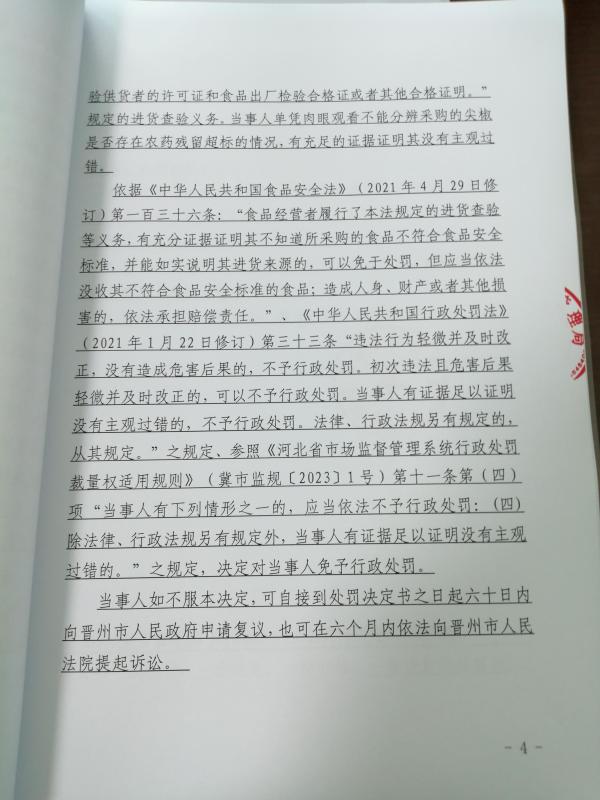 验供货者的许可证和食品出厂检验合格证或者其他合格证明。”
规定的进货查验义务。当事人单凭肉眼观看不能分辨采购的尖椒
是否存在农药残留超标的情况，有充足的证据证明其没有主观过
错。
依据《中华人民共和国食品安全法》（2021年4月29日修
订）第一百三十六条：“食品经营者履行了本法规定的进货查验
等义务，有充分证据证明其不知道所采购的食品不符合食品安全
标准，并能如实说明其进货来源的，可以免于处罚，但应当依法
没收其不符合食品安全标准的食品；造成人身、财产或者其他损
害的，依法承担赔偿责任。”、《中华人民共和国行政处罚法》
（2021年1月22日修订）第三十三条“违法行为轻微并及时改
正，没有造成危害后果的，不予行政处罚。初次违法且危害后果
轻微并及时改正的，可以不予行政处罚。当事人有证据足以证明
没有主观过错的，不予行政处罚。法律、行政法规另有规定的，
从其规定。”之规定、参照《河北省市场监督管理系统行政处罚
裁量权适用规则》（冀市监规〔2023〕1号）第十一条第（四）
项“当事人有下列情形之一的，应当依法不予行政处罚：(四)
除法律、行政法规另有规定外，当事人有证据足以证明没有主观
过错的。”之规定，决定对当事人免予行政处罚。
当事人如不服本决定，可自接到处罚决定书之日起六十日内
向晋州市人民政府申请复议，也可在六个月内依法向晋州市人民
法院提起诉讼。
理局
- 4 -